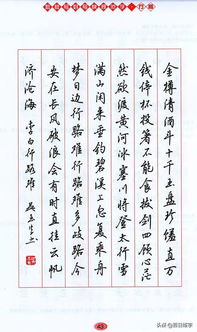 金樽清酒斗十千玉盘珍馐直万
钱停杯投箸不能食拔剑四顾心茫
然欲渡黄河冰塞川将登太行雪
满山闲来垂钓碧溪上忽复乘舟
梦日边行路难行路难多歧路今
安在长风破浪会有时直挂云帆
济沧海 李白行路难
43